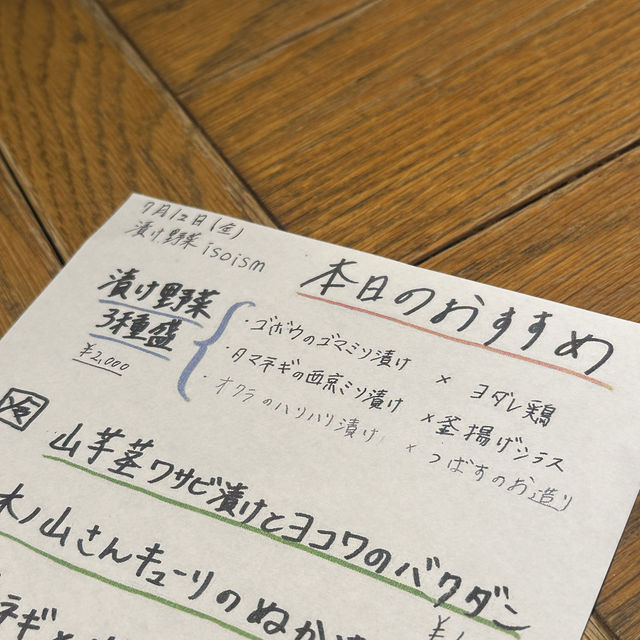 7月12日(金)
漬け野菜 isoism
本日のおすすめ
漬け野菜
3種盛
¥2,000
・ゴボウのゴマミソ漬け × ヨダレ鶏
・タマネギの西京ミソ漬け × 釜揚げシラス
・オクラのハリハリ漬け × つばすのお造り
山芋茎ワサビ漬けとヨコワのバクダン
木ノ山さんキューリのぬか
ネギ